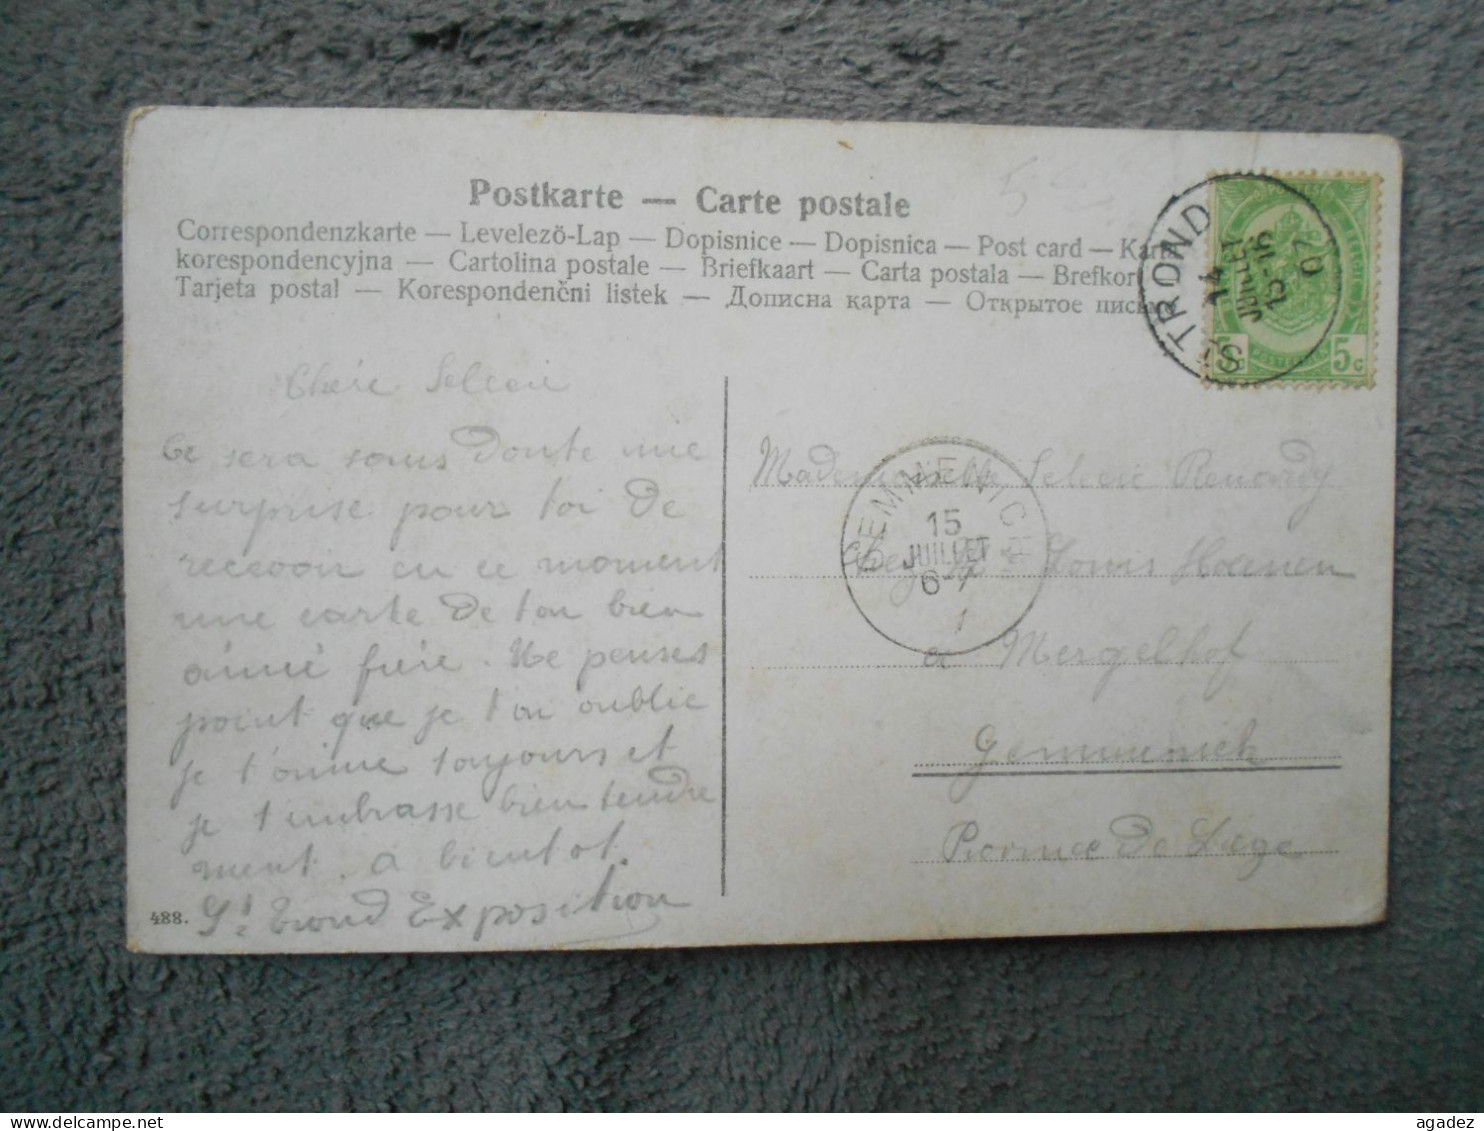 Postkarte — Carte postale
Correspondenzkarte — Levelező-Lap — Dopisnice — Dopisnica — Post card — Karta
korespondencyjna — Cartolina postale — Briefkaart — Carta postala — Brefkort
Tarjeta postal — Korespondenčni listek — Дописна карта — Открытое письмо
ST TROND
14
JUILLET
15-16
07
5c
Chère
Ce sera sans Doute une
surprise pour toi de
recevoir en ce moment
une carte De ton bien
aimé frère. Ne penses
point que je t'on oublie
je t'aime toujours et
je t'embrasse bien tendre
ment. a bientot.
St. Trond Exposition
488.
GEMMENICH
15
JUILLET
6-7
Mademoiselle
Louis
a Mergelhof
Gemmenich
Province De Liège
agadez